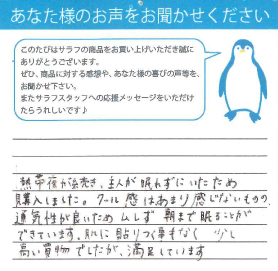 あなた様のお声をお聞かせください
このたびはサラフの商品をお買い上げいただき誠に
ありがとうございます。
ぜひ、商品に対する感想や、あなた様の喜びの声等を、
お聞かせ下さい。
またサラフスタッフへの応援メッセージをいただけ
たらうれしいです♪
熱帯夜が続き、主人が眠れずにいたため
購入しました。クール感はあまり感じないものの
通気性が良いため ムレず 朝まで眠ることが
できています。肌に貼りつく事もなく 少し
高い買物でしたが、満足しています